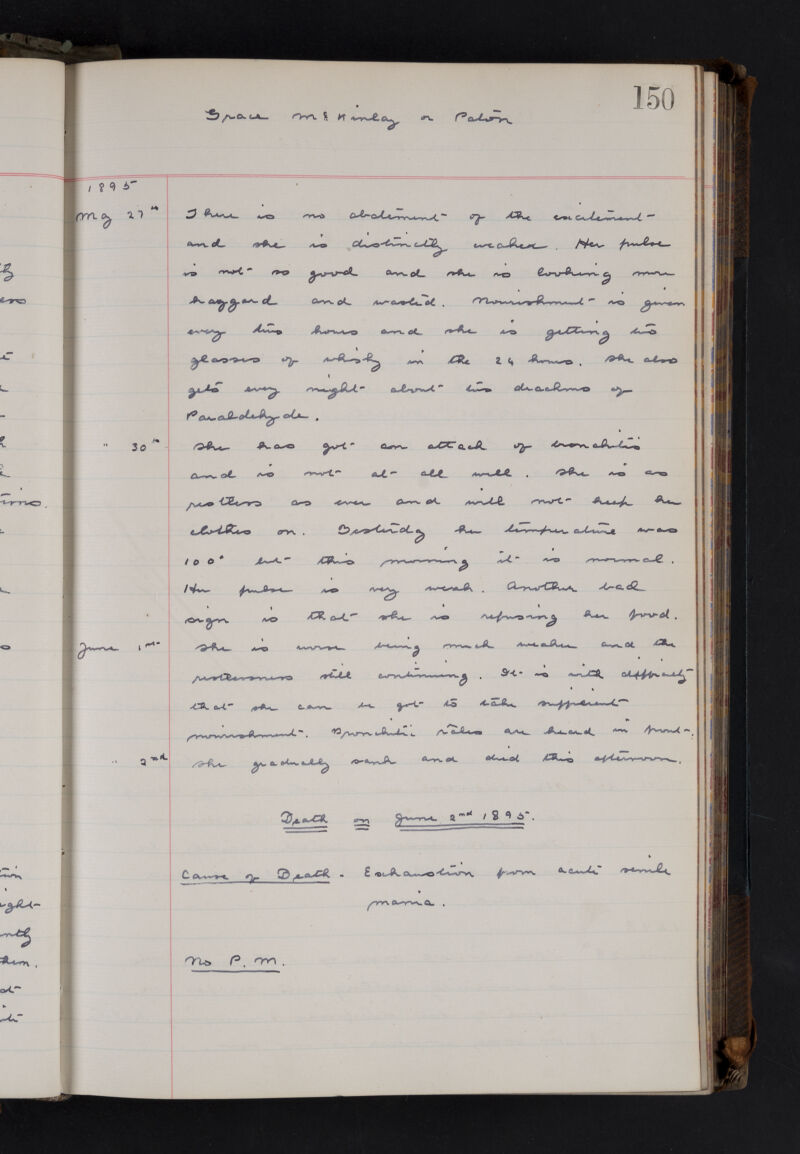 150
Grace McKinlay or Paton
1895
May 27th There is no abatement of the excitement
and she is distinctly weaker. Her pulse
is not so good and she is looking more
haggard and wasted. Nourishment is given
every two hours and she is getting two
glasses of whisky in the 24 hours. She also
gets every night about two drachms of
Paraldehyde.
" 30th She has got an attack of bronchitis
and is not at all well. She is as
restless as ever and will not keep her
clothes on. Yesterday her temperature was
100° but this morning it is normal.
Her pulse is very weak. Another bad
sign is that she is refusing her food.
June 1st She is worse being much weaker and the
restlessness still continuing. It is with difficulty
that she can be got to take sufficient
nourishment. Bronchitic râles are heard in front.
" 2nd She gradually sank and died this afternoon.
Death on June 2nd 1895.
Cause of Death - Exhaustion from acute senile
mania.
No P.M.